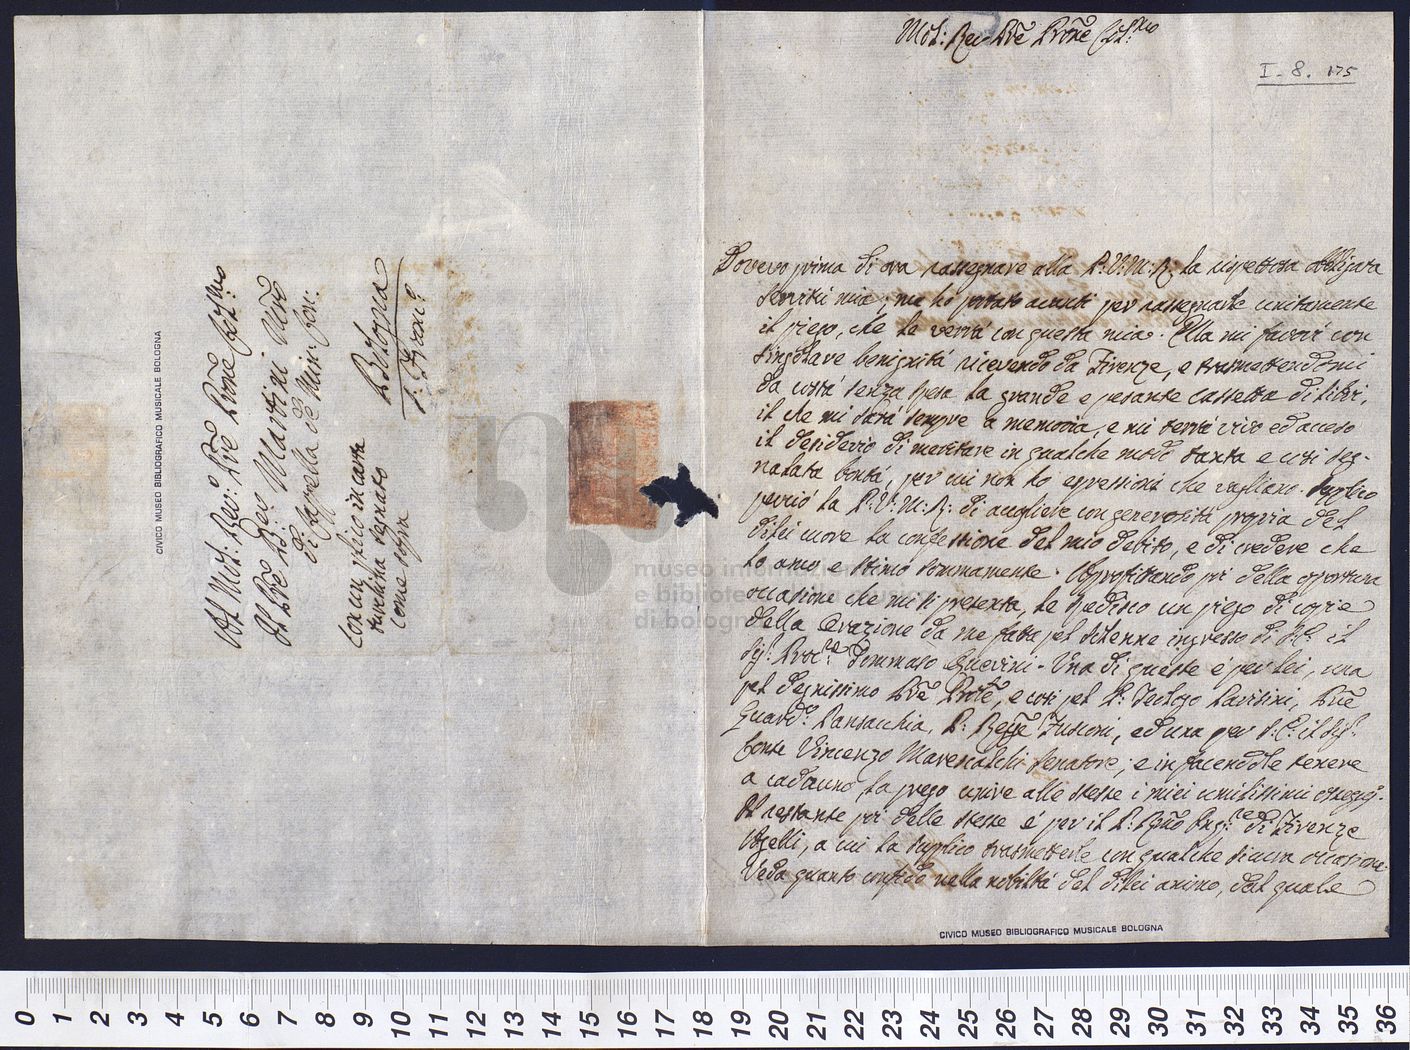 Al Molt: Rev:o Pre Prōne Col:mo
Il Pre Bac: Martini Mro
di Cappella de Min: Con:
Bologna
S. Franc:o
Con un plico in carta
turchina segnato
come sopra
CIVICO MUSEO BIBLIOGRAFICO MUSICALE BOLOGNA
museo internazionale
e biblioteca della musica
di bologna
Molt: Rev: Pre Prōne Col:mo
I. 8. 175
Dovevo prima di ora rassegnare alla P: V: M: R: la rispettosa obbligata
servitù mia; ma ho portato avanti per rassegnarle unitamente
il piego, che le verrà con questa mia. Ella mi favorì con
singolare benignità ricevendo da Firenze, e trasmettendomi
da costà senza spesa la grande e pesante cassetta di libri,
il che mi sarà sempre a memoria, e mi terrà vivo ed acceso
il desiderio di meritare in qualche modo tanta e così seg-
nalata bontà, per cui non ho espressioni che vagliano. Supplico
perciò la P: V: M: R: di accogliere con generosità propria del
di lei cuore la confessione del mio debito, e di credere che
lo amo e stimo sommamente. Approfittando poi della opportuna
occasione che mi si presenta, le spedisco un piego di copie
della Orazione da me fatta pel solenne ingresso di S: E: il
Sig: Proc:re Tommaso Querini. Una di queste è per lei, una
pel degnissimo Pre Prōle, e così pel P: Teologo Pavisini, Pre
Guard:o Pansacchia, P: Regge Fusconi, ed una per S. E. il Sig:
Conte Vincenzo Marescalchi Senatore; e in facendole tenere
a cadauno, la prego unire alle stesse i miei umilissimi ossequj.
Il restante poi delle stesse è per il P: Rmo Inq:re di Firenze
a cui la supplico trasmetterle con qualche sicura occasione.
Veda quanto confido nella nobiltà del di lei animo, dal quale
CIVICO MUSEO BIBLIOGRAFICO MUSICALE BOLOGNA
0 1 2 3 4 5 6 7 8 9 10 11 12 13 14 15 16 17 18 19 20 21 22 23 24 25 26 27 28 29 30 31 32 33 34 35 36